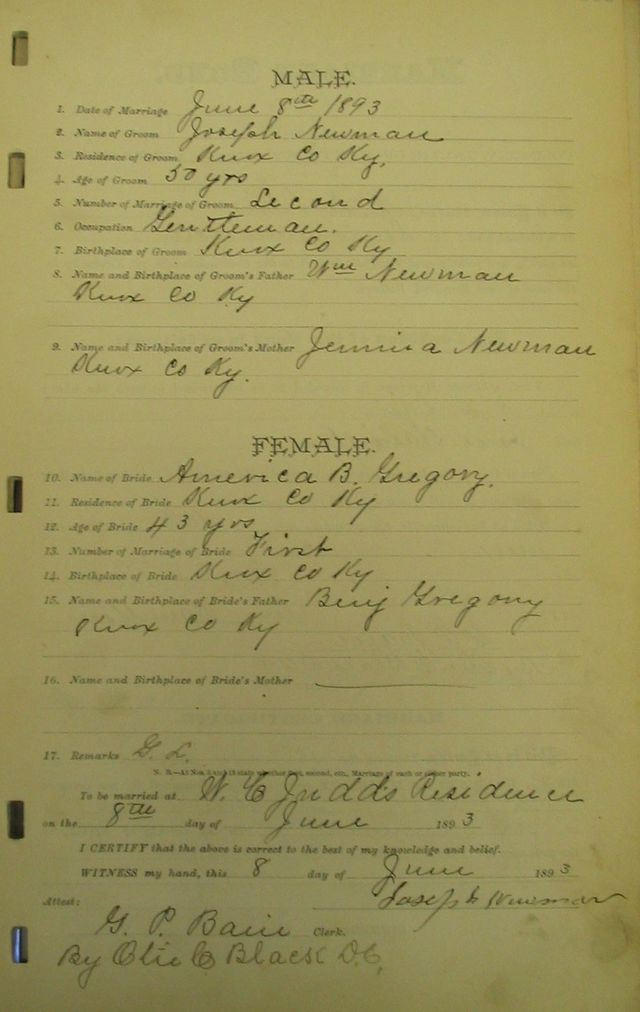 MALE.
1. Date of Marriage June 8th 1893
2. Name of Groom Joseph Newman
3. Residence of Groom Knox Co Ky,
4. Age of Groom 50 yrs
5. Number of Marriage of Groom Second
6. Occupation Gentleman.
7. Birthplace of Groom Knox Co Ky
8. Name and Birthplace of Groom's Father Wm Newman
Knox Co Ky
9. Name and Birthplace of Groom's Mother Jemima Newman
Knox Co Ky.
FEMALE.
10. Name of Bride America B. Gregory.
11. Residence of Bride Knox Co Ky
12. Age of Bride 43 yrs
13. Number of Marriage of Bride First
14. Birthplace of Bride Knox Co Ky
15. Name and Birthplace of Bride's Father Benj Gregory
Knox Co Ky
16. Name and Birthplace of Bride's Mother
17. Remarks G. L.
N. B.—At Nos. 5 and 13 state whether first, second, etc., Marriage of each or either party.
To be married at W. C Judds Residence
on the 8th day of June 1893
I CERTIFY that the above is correct to the best of my knowledge and belief.
WITNESS my hand, this 8 day of June 1893
Joseph Newman
Attest:
G. P. Bain Clerk.
By Olie C Black D.C,